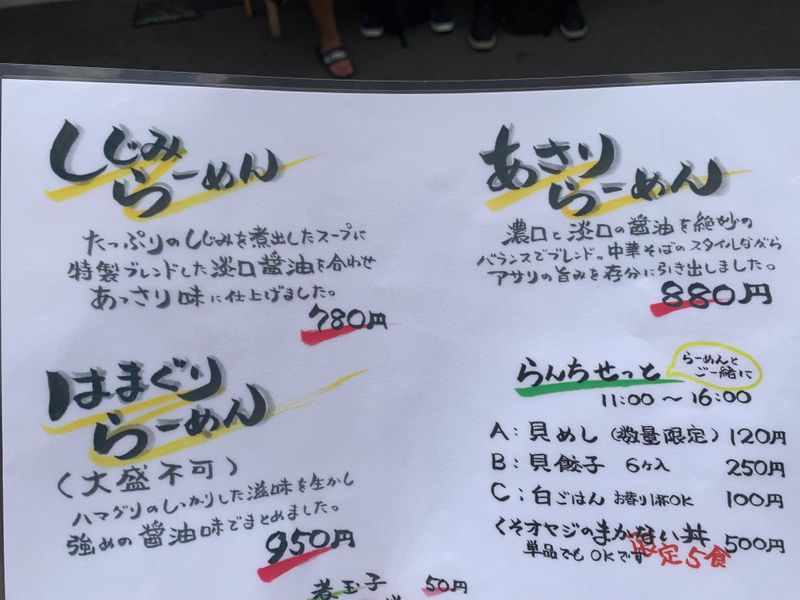 しじみ
らーめん
たっぷりのしじみを煮出したスープに
特製ブレンドした淡口醤油を合わせ
あっさり味に仕上げました。
780円
はまぐり
らーめん
(大盛不可)
ハマグリのしっかりした滋味を生かし
強めの醤油味でまとめました。
950円
煮玉子 50円
あさり
らーめん
濃口と淡口の醤油を絶妙の
バランスでブレンド。中華そばのスタイルながら
アサリの旨みを存分に引き出しました。
880円
らんちせっと
らーめんと
ご一緒に
11:00〜16:00
A:貝めし(数量限定)120円
B:貝餃子 6ヶ入 250円
C:白ごはん お替り1杯OK 100円
くそオヤジのまかない丼 500円
単品でもOKです
限定5食